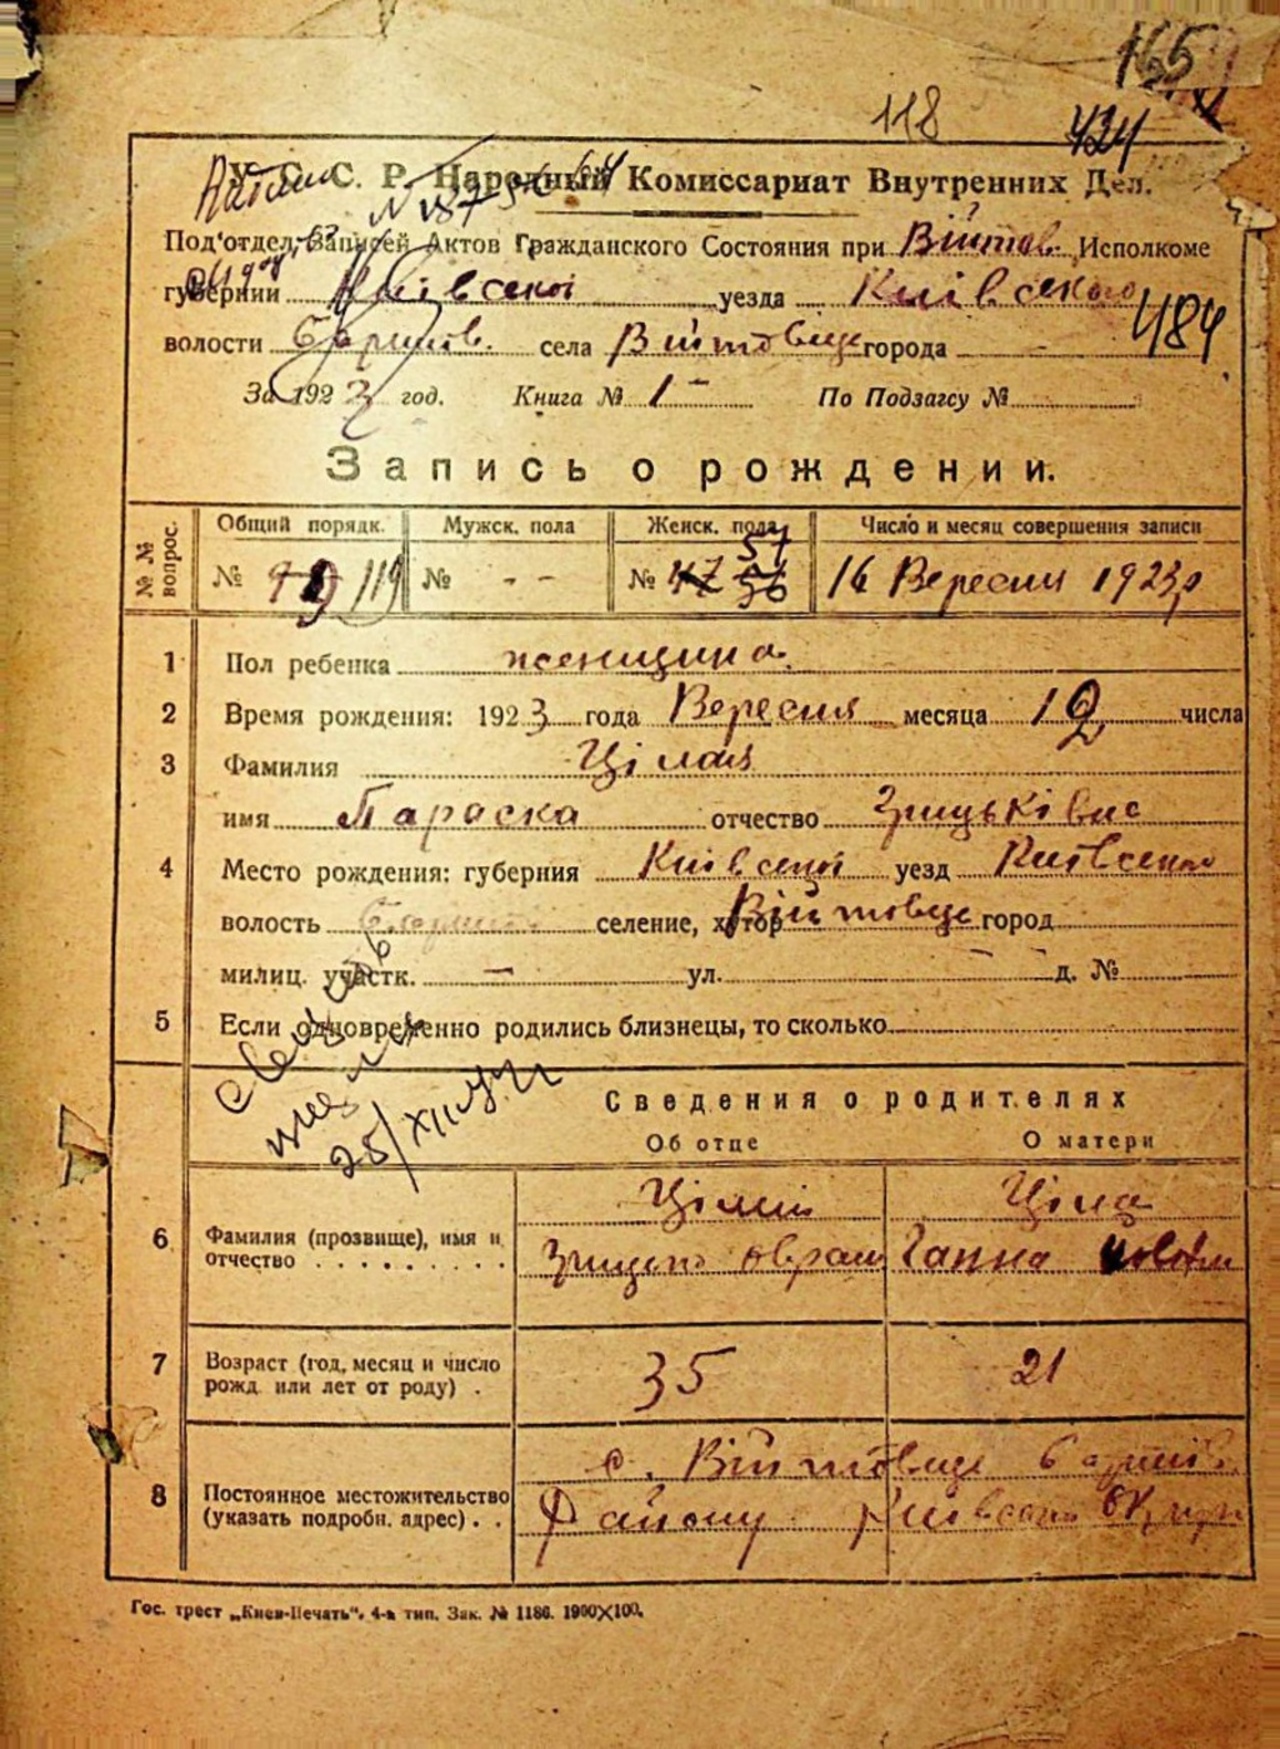 165
118
424
У. С. С. Р. Народный Комиссариат Внутренних Дел.
Под'отдел Записей Актов Гражданского Состояния при Війтов. Исполкоме
губернии Київської уезда Київського
484
волости села Війтовце города
За 1923 год. Книга № 1 По Подзагсу №
Запись о рождении.
№№ вопрос. Общий порядк. Мужск. пола Женск. пола Число и месяц совершения записи
57
№ 119 № - - № 47 56 16 Вересня 1923 р
1 Пол ребенка женщина.
2 Время рождения: 1923 года Вересня месяца 12 числа
3 Фамилия Цілая
имя Параска отчество Грицьківна
4 Место рождения: губерния Київської уезд Київського
волость селение, хутор Війтовце город
милиц. участк. — ул. д. №
5 Если одновременно родились близнецы, то сколько
25/XII
Сведения о родителях
Об отце О матери
6 Фамилия (прозвище), имя и отчество Цілий Грицько Оврам Ціла Ганна
7 Возраст (год, месяц и число рожд. или лет от роду) 35 21
8 Постоянное местожительство (указать подробн. адрес) с. Війтовце
Району Київської Округи
Гос. трест „Киев-Печать“. 4-я тип. Зак. № 1186. 1900×100.